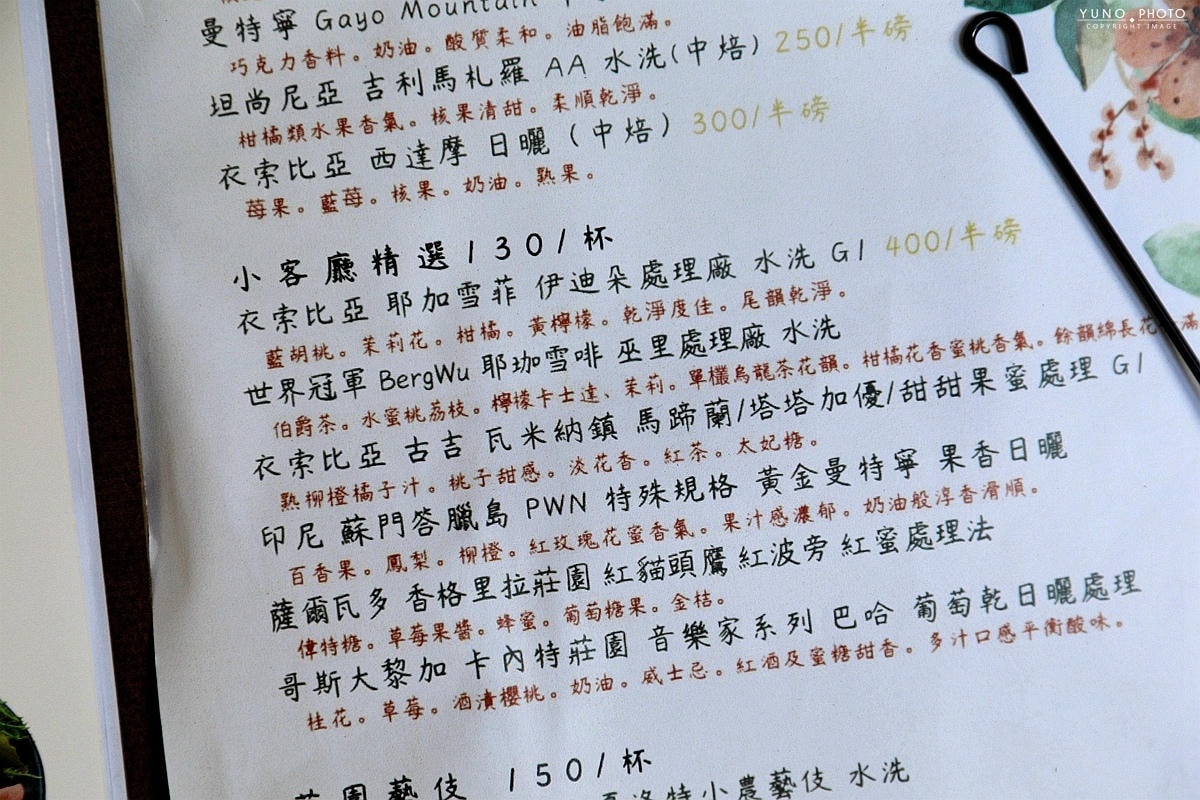 YUNO PHOTO
COPYRIGHT IMAGE
曼特寧 Gayo Mountain
巧克力香料。奶油。酸質柔和。油脂飽滿。
坦尚尼亞 吉利馬札羅 AA 水洗(中焙) 250/半磅
柑橘類水果香氣。核果清甜。柔順乾淨。
衣索比亞 西達摩 日曬 (中焙) 300/半磅
莓果。藍莓。核果。奶油。熟果。
小客廳精選130/杯
衣索比亞 耶加雪菲 伊迪朵處理廠 水洗 G1 400/半磅
藍胡桃。茉莉花。柑橘。黃檸檬。乾淨度佳。尾韻乾淨。
世界冠軍 BergWu 耶珈雪啡 巫里處理廠 水洗
伯爵茶。水蜜桃荔枝。檸檬卡士達、茉莉。單欉烏龍茶花韻。柑橘花香蜜桃香氣。餘韻綿長花 滿
衣索比亞 古吉 瓦米納鎮 馬蹄蘭/塔塔加優/甜甜果蜜處理 G1
熟柳橙橘子汁。桃子甜感。淡花香。紅茶。太妃糖。
印尼 蘇門答臘島 PWN 特殊規格 黃金曼特寧 果香日曬
百香果。鳳梨。柳橙。紅玫瑰花蜜香氣。果汁感濃郁。奶油般淳香滑順。
薩爾瓦多 香格里拉莊園 紅貓頭鷹 紅波旁 紅蜜處理法
偉特糖。草莓果醬。蜂蜜。葡萄糖果。金桔。
哥斯大黎加 卡內特莊園 音樂家系列 巴哈 葡萄乾日曬處理
桂花。草莓。酒漬櫻桃。奶油。威士忌。紅酒及蜜糖甜香。多汁口感平衡酸味。
園藝伎 150/杯
洛特小農藝伎 水洗